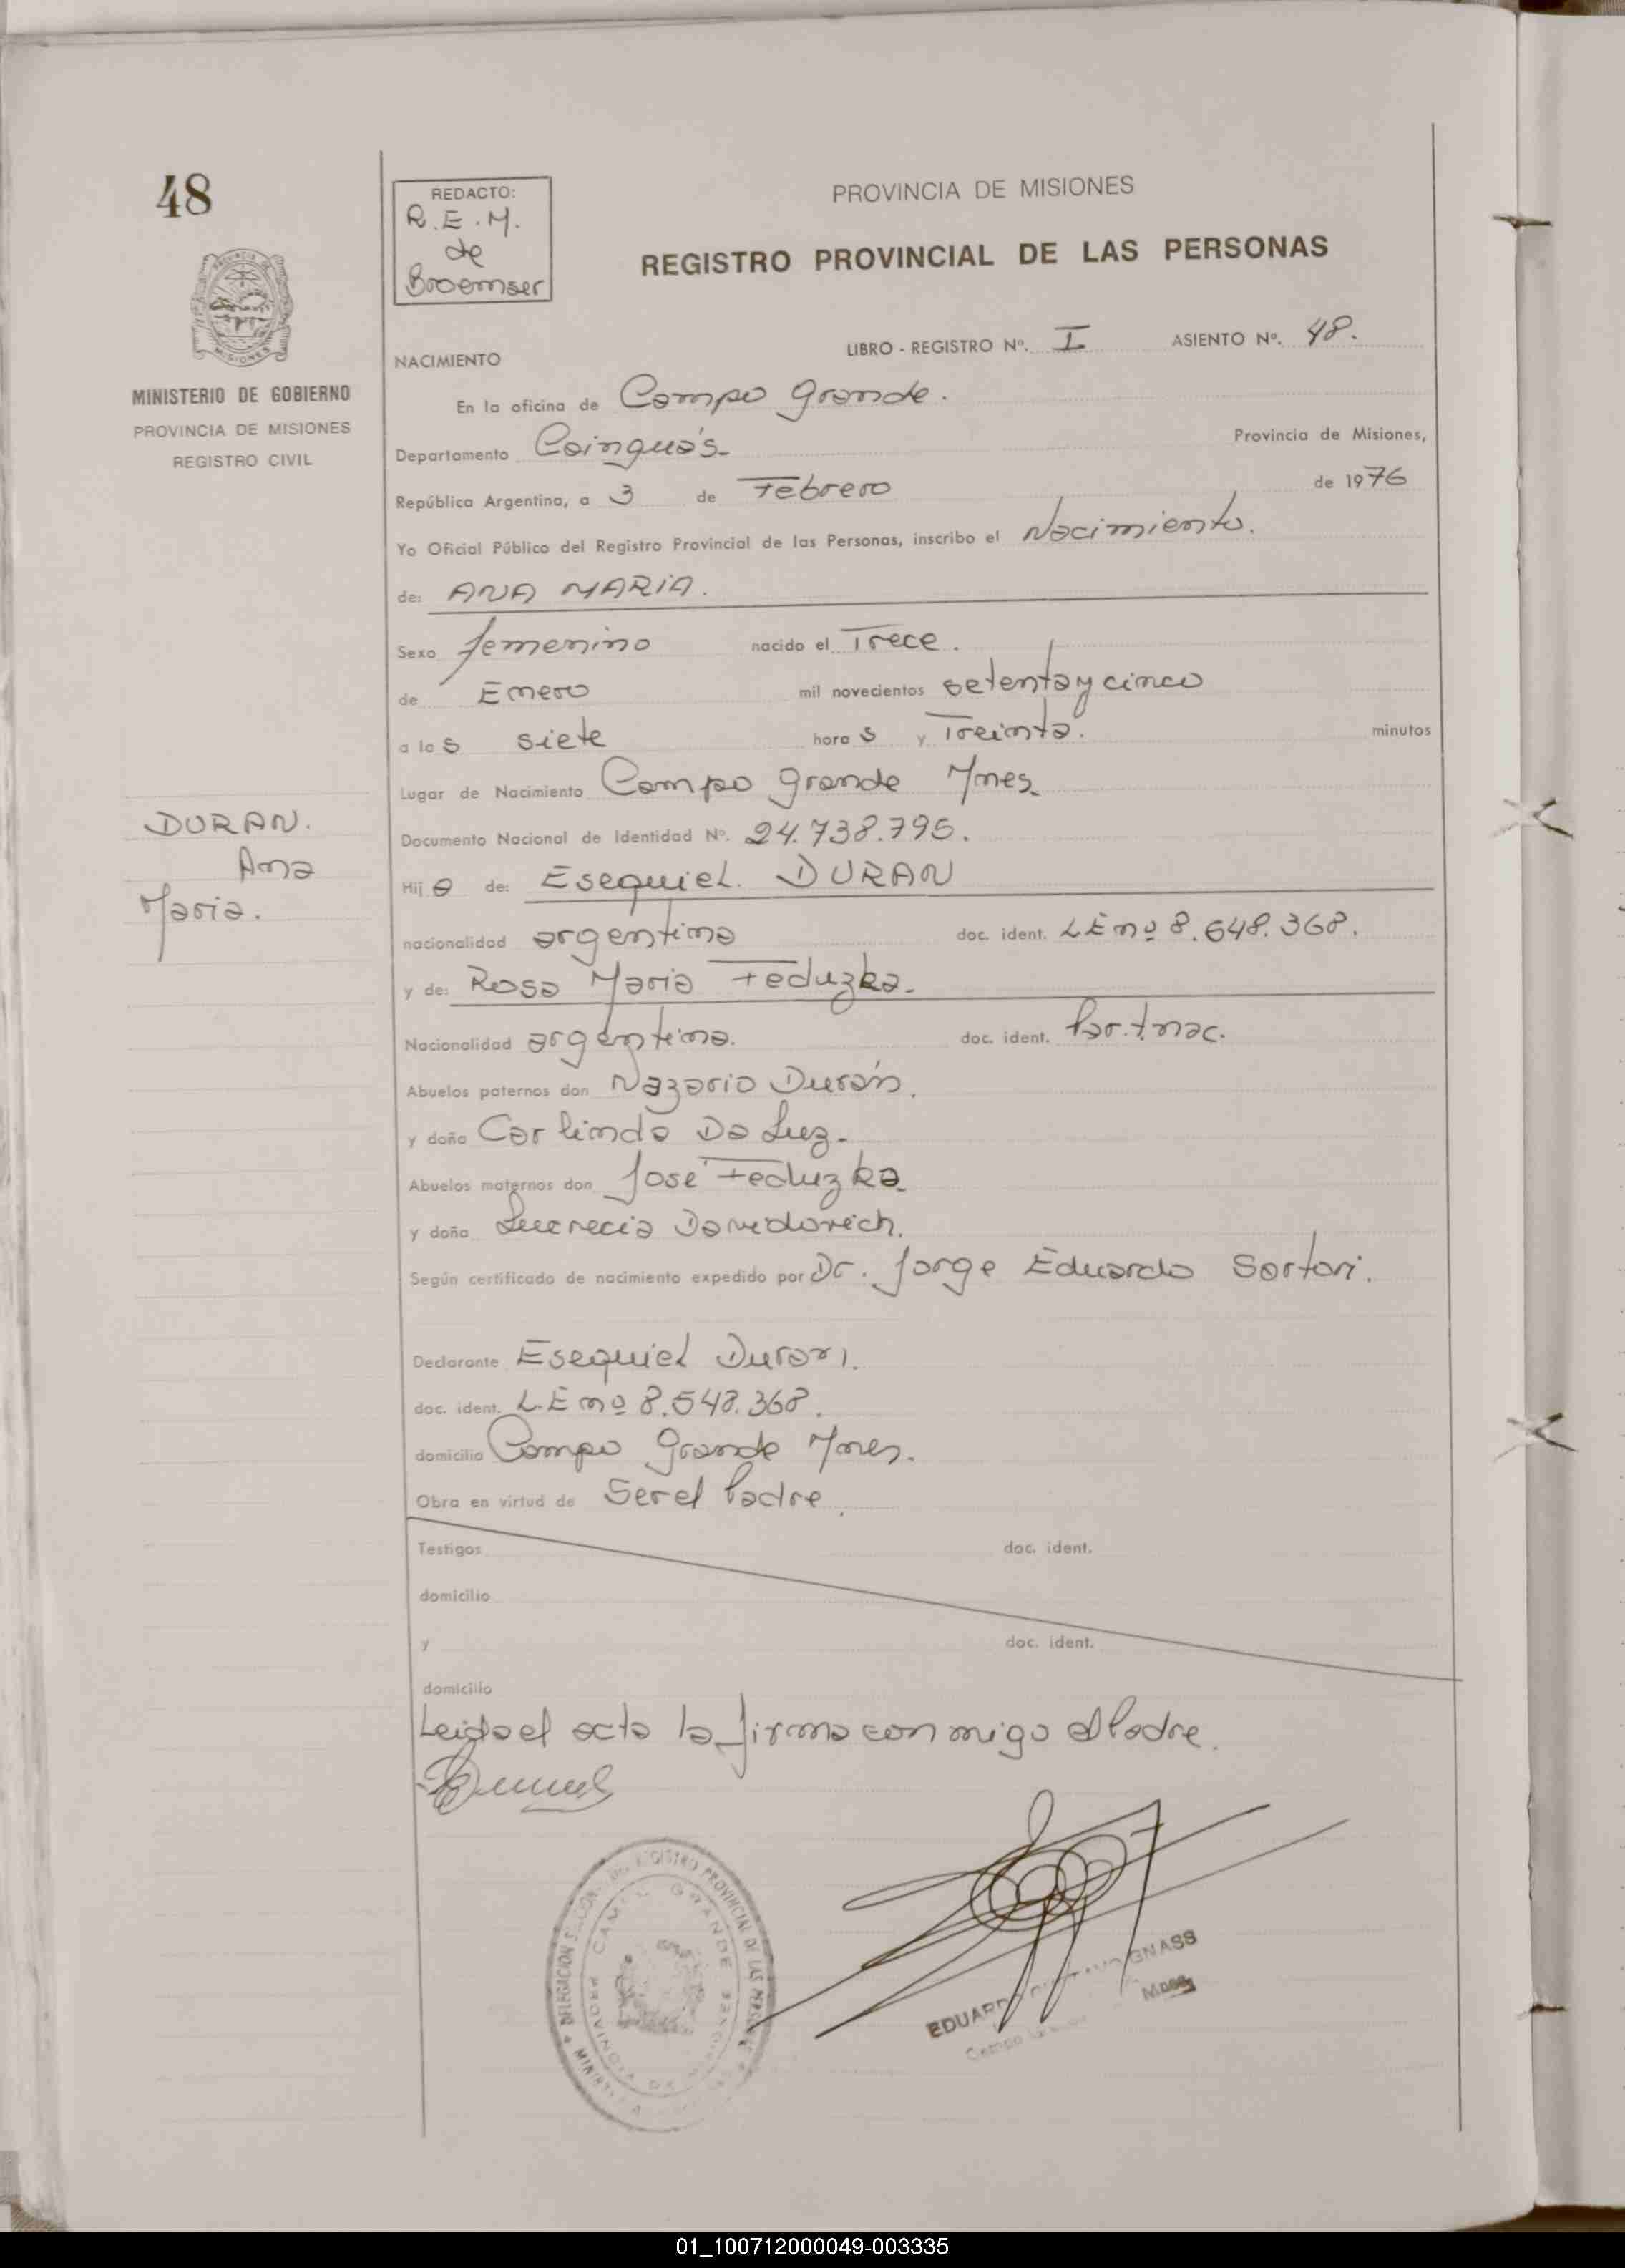 48
REDACTO:
R.E.M.
de
Broemser
PROVINCIA DE MISIONES
REGISTRO PROVINCIAL DE LAS PERSONAS
MINISTERIO DE GOBIERNO
PROVINCIA DE MISIONES
REGISTRO CIVIL
NACIMIENTO
LIBRO - REGISTRO Nº. I ASIENTO Nº. 48.
En la oficina de Campo Grande.
Departamento Cainguás. Provincia de Misiones,
República Argentina, a 3 de Febrero de 1976
Yo Oficial Público del Registro Provincial de las Personas, inscribo el Nacimiento.
de: ANA MARIA.
Sexo femenino nacido el Trece.
de Enero mil novecientos setenta y cinco
a las siete horas y Treinta. minutos
Lugar de Nacimiento Campo Grande Mnes.
DURAN.
Ana
Maria.
Documento Nacional de Identidad Nº. 24.738.795.
Hija de: Esequiel. DURAN
nacionalidad argentina doc. ident. LE nº 8.648.368.
y de: Rosa Maria Feduzka.
Nacionalidad argentina. doc. ident. Par.t.nac.
Abuelos paternos don Nazario Durán.
y doña Carlinda Da Luz.
Abuelos maternos don José Feduzka.
y doña Lucrecia Davidovich.
Según certificado de nacimiento expedido por Dr. Jorge Eduardo Sartori.
Declarante Esequiel Duran.
doc. ident. L.E nº 8.548.368.
domicilio Campo Grande Mnes.
Obra en virtud de Ser el Padre.
Testigos doc. ident.
domicilio
y doc. ident.
domicilio
Leida el acta la firma conmigo el Padre.
DELEGACION REGISTRO PROVINCIAL DE LAS
GRANDE
PROVINCIA DE
EDUARDO GNASS
Campo Mnes
01_100712000049-003335